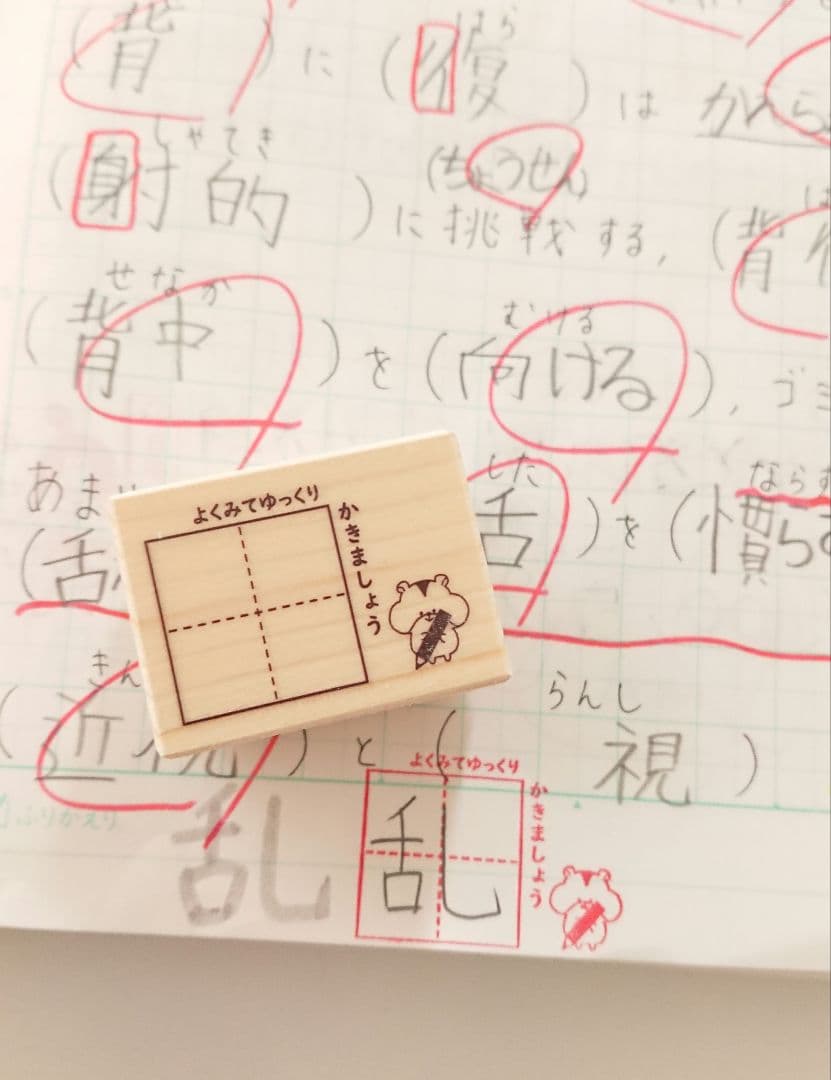 はら
(背)に(優)は から
しゃてき (ちょうせん)
(射的)に挑戦する,(背
せなか むける
(背中)を(向ける),ゴミ
あま した ならす
(舌 舌)を(慣らす
きん らんし
(近視)と( 視)
よくみてゆっくり
かきましょう
よくみてゆっくり
かきましょう
ふりかえり
乱 乱